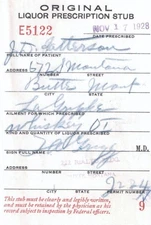 ORIGINAL
LIQUOR PRESCRIPTION STUB
E5122
NOV 17 1928
DATE PRESCRIBED
FULL NAME OF PATIENT
672 Montana
ADDRESS
NUMBER
STREET
Butte Mont
CITY
STATE
La Grippe
AILMENT FOR WHICH PRESCRIBED
Whiskey Pt
SIGN FULL NAME
M.D.
ADDRESS
NUMBER
STREET
CITY
STATE
PERMIT NUMBER
This stub must be clearly and legibly written,
and must be retained by the physician at his
record subject to inspection by Federal officers.
9